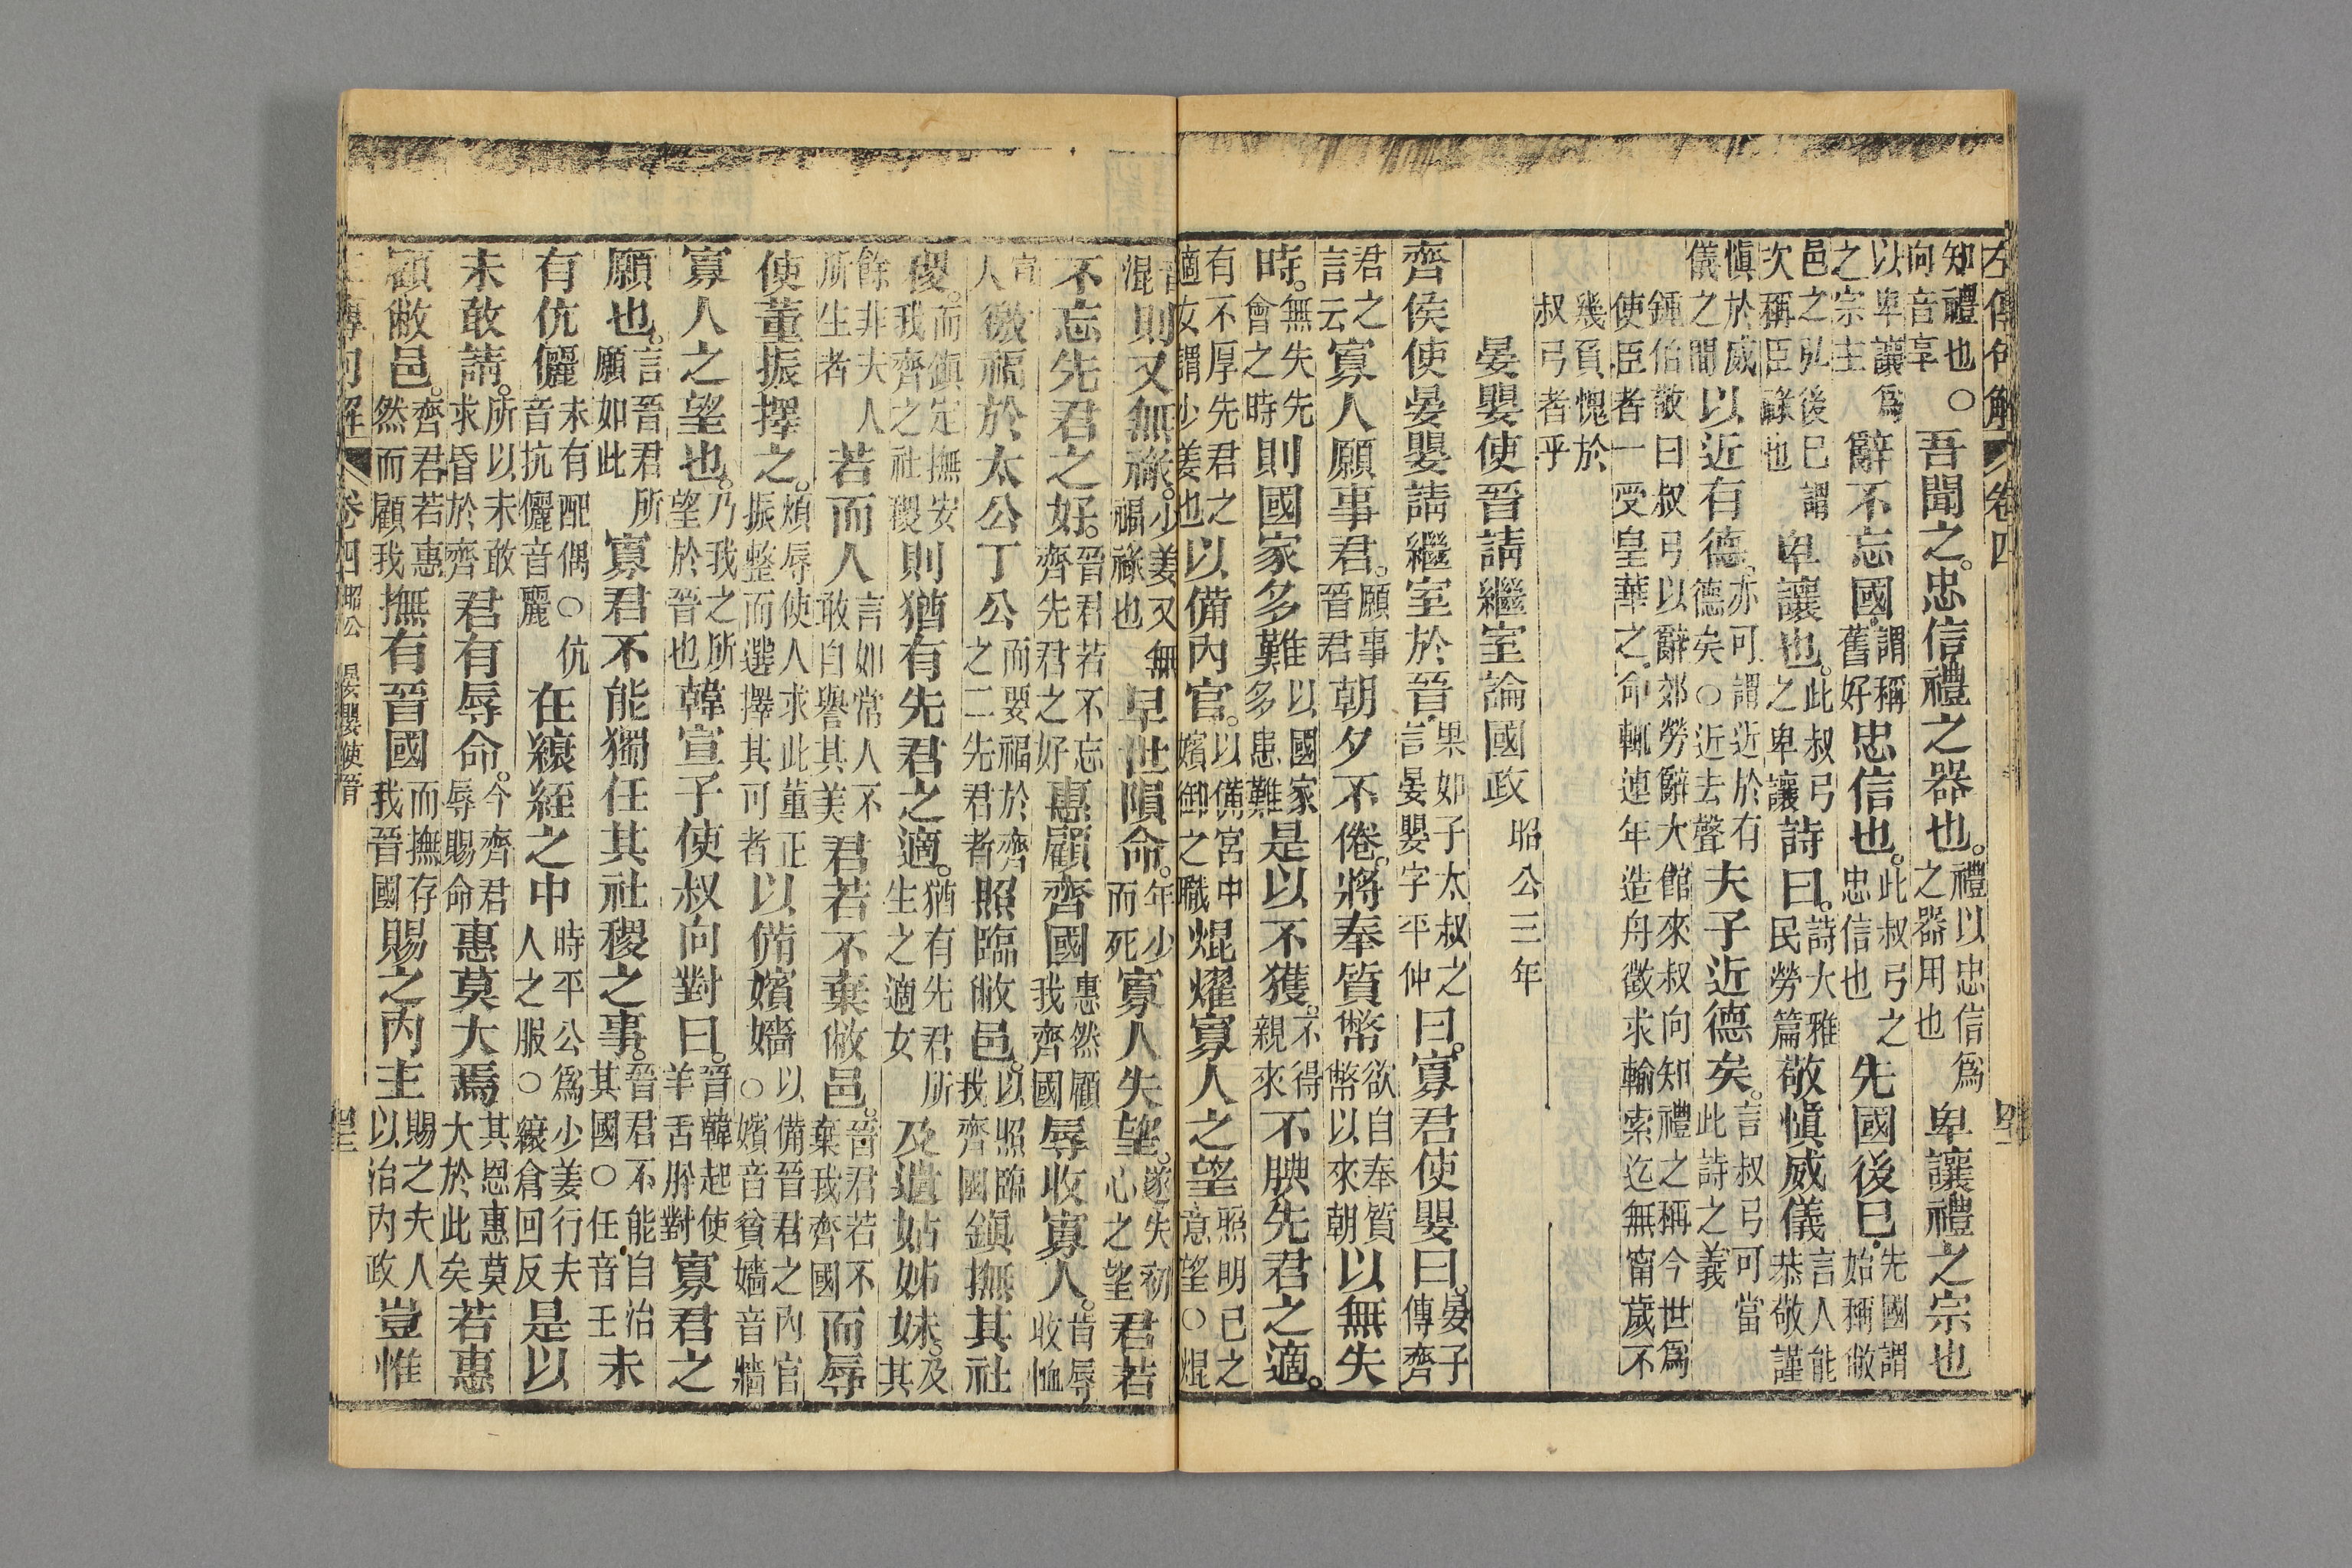 左傳句解 卷四
知禮也○向音享吾聞之。忠信禮之器也。禮以忠信爲之器用也卑讓禮之宗也
以卑讓爲之宗主辭不忘國。謂稱舊好忠信也。此叔弓之忠信也先國後已。先國謂始稱敝
邑之弘後已謂次稱臣祿也卑讓也。此叔弓之卑讓詩曰。詩大雅民勞篇敬愼威儀言人能恭敬謹
愼於威儀之間以近有德。亦可謂近於有德矣○近去聲夫子近德矣。言叔弓可當此詩之義
鍾伯敬曰叔弓以辭郊勞辭大館來叔向知禮之稱今世爲
使臣者一受皇華之命輒連年造舟徵求輸索迄無甯歲不
幾負愧於
叔弓者乎
晏嬰使晉請繼室論國政 昭公三年
齊侯使晏嬰請繼室於晉。果如子太叔之言晏嬰字平仲曰。寡君使嬰曰。晏子傳齊
君之言云寡人願事君。願事晉君朝夕不倦。將奉質幣欲自奉質幣以來朝以無失
時。無失先會之時則國家多難以國家多患難是以不獲。不得親來不腆先君之適。
有不厚先君之適女謂少姜也以備內官。以備宮中嬪御之職焜燿寡人之望照明已之意望○焜
音混則又無祿。少姜又無福祿也早世隕命。年少而死寡人失望。遂失初心之望君若
不忘先君之好。晉君若不忘齊先君之好惠顧齊國惠然顧我齊國辱收寡人。肯辱收恤
寡人徼福於太公丁公而要福於齊之二先君者照臨敝邑。以照臨我齊國鎭撫其社
稷。而鎭定撫安我齊之社稷則猶有先君之適。猶有先君所生之適女及遺姑姊妹。及其
餘非夫人所生者若而人言如常人不敢自譽其美君若不棄敝邑。晉君若不棄我齊國而辱
使董振擇之。煩辱使人求此董正振整而選擇其可者以備嬪嬙以備晉君之內官○嬪音貧嬙音牆
寡人之望也。乃我之所望於晉也韓宣子使叔向對曰。晉韓起使羊舌肸對寡君之
願也。言晉君所願如此寡君不能獨任其社稷之事。晉君不能自治其國○任音壬未
有伉儷未有配偶○伉音抗儷音麗在縗絰之中時平公爲少姜行夫人之服○縗倉回反是以
未敢請。所以未敢求昏於齊君有辱命。今齊君辱賜命惠莫大焉其恩惠莫大於此矣若惠
顧敝邑。齊君若惠然而顧我撫有晉國而撫存我晉國賜之內主賜之夫人以治內政豈惟
左傳句解 卷四 昭公 晏嬰使晉